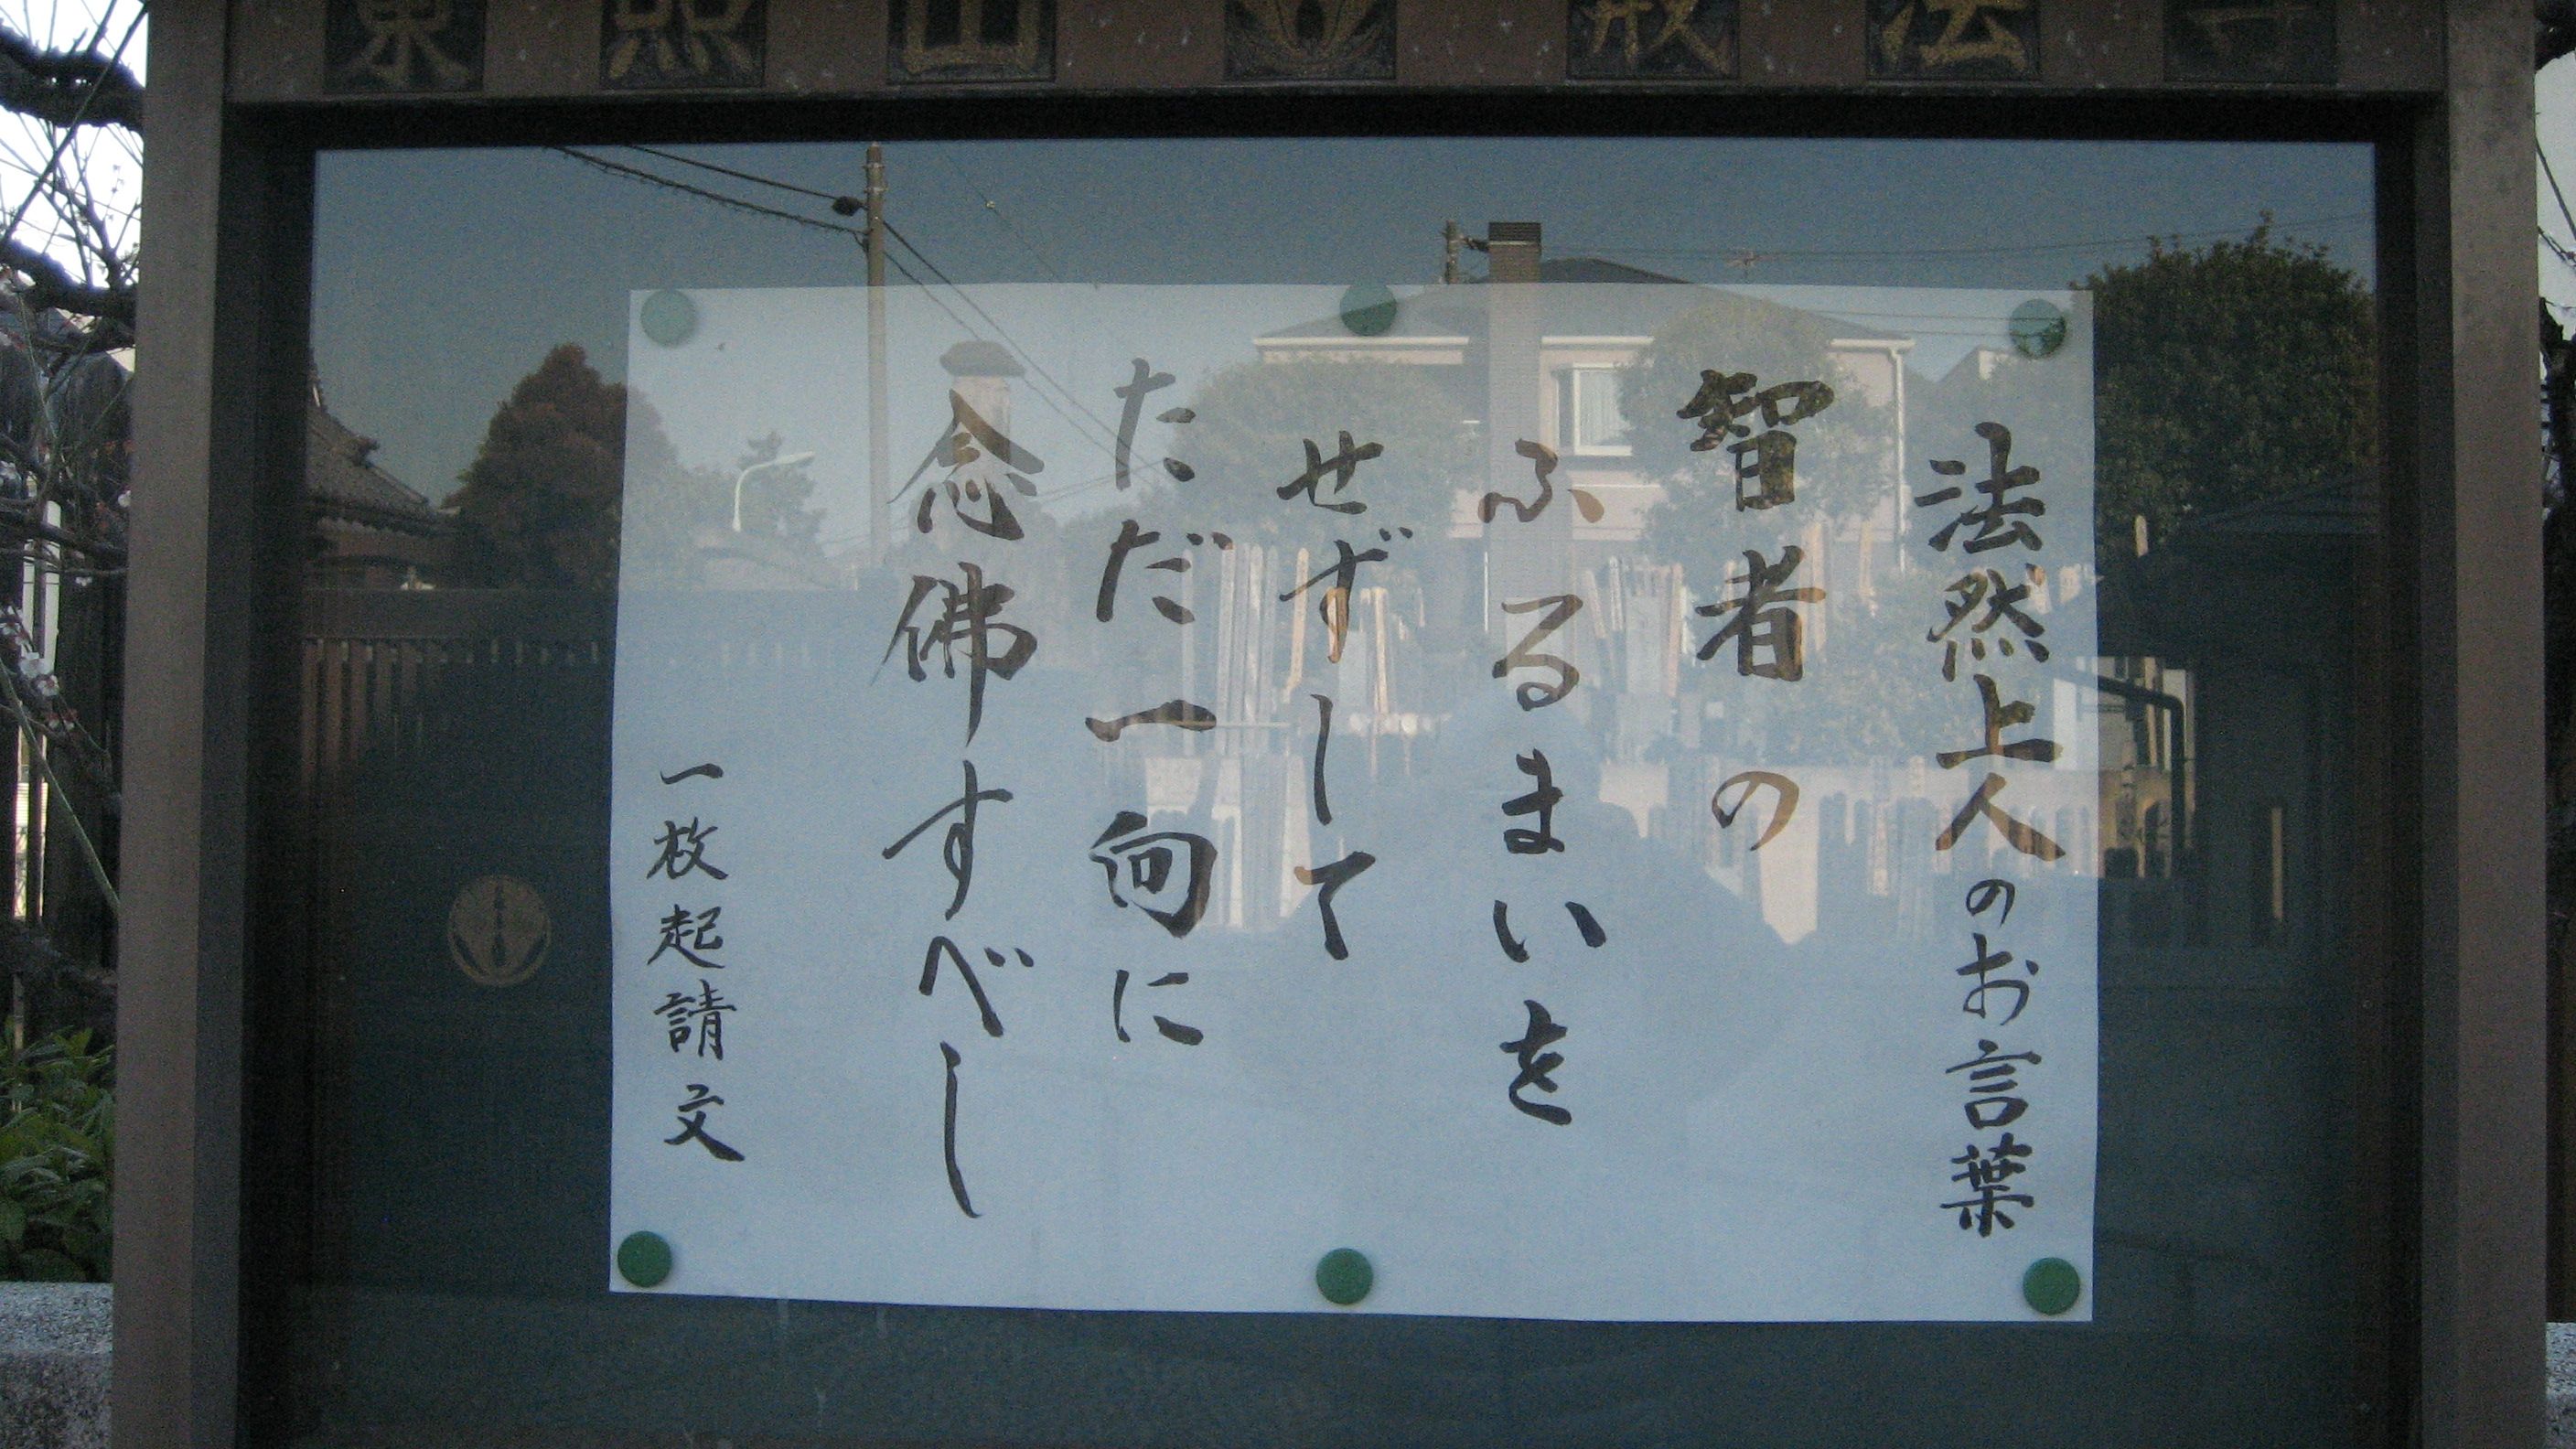 東照山 戒法寺
法然上人のお言葉
智者の
ふるまいを
せずして
ただ一向に
念佛すべし
一枚起請文